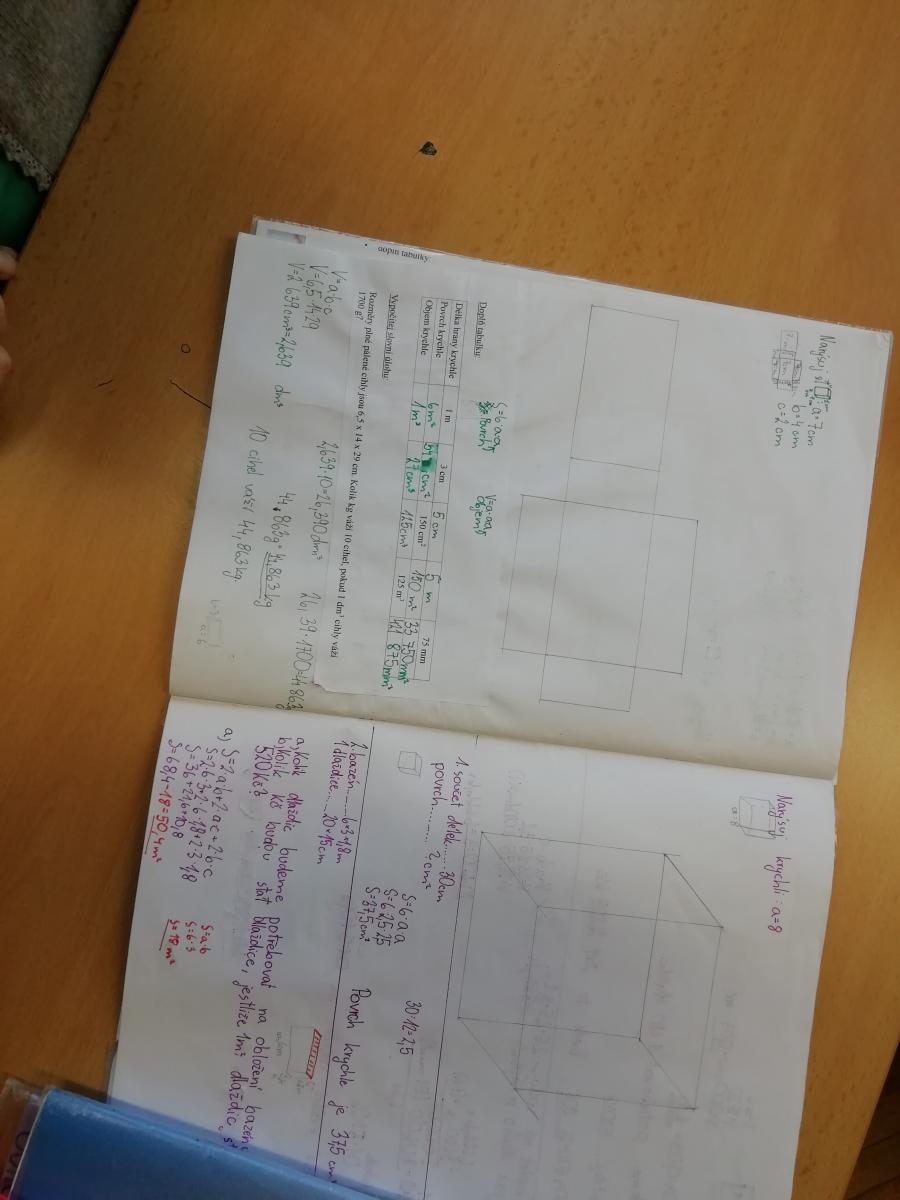 Narýsuj
a=7 cm
b=4 cm
c=2 cm
S=6·a·a
Povrch
V=a·a·a
Objem
Doplň tabulky:
Délka hrany krychle 1 m 3 cm 5 cm 5 m 75 mm
Povrch krychle 6m² cm² 150 cm² 150 m² 33 750mm²
Objem krychle 1m³ 27cm³ 125cm³ 125 m³ 421 875mm³
Vypočítej slovní úlohu:
Rozměry plné pálené cihly jsou 6,5 x 14 x 29 cm. Kolik kg váží 10 cihel, pokud 1 dm³ cihly váží
1700 g?
V=a·b·c
V=6,5·14·29
V=2 639cm³=2,639 dm³
2,639·10=26,390dm³
26,39·1700=44 863g
44 863g=44,863 kg
10 cihel váží 44,863kg.
doplň tabulky:
Narýsuj krychli: a=8
a=8
1. součet délek......30cm
povrch......... ? cm²
30:12=2,5
S=6·a·a
S=6·2,5·2,5
S=37,5cm²
Povrch krychle je 37,5 cm²
2. bazén......6×3×1,8m
1 dlaždice....20×15cm
a, Kolik dlaždic budeme potřebovat na obložení bazénu
b, Kolik kč budou stát dlaždice, jestliže 1m² dlaždic
520kč?
a) S=2·a·b+2·a·c+2·b·c
S=2·6·3+2·6·1,8+2·3·1,8
S=36+21,6+10,8
S=68,4-18=50,4m²
S=a·b
S=6·3
S=18m²